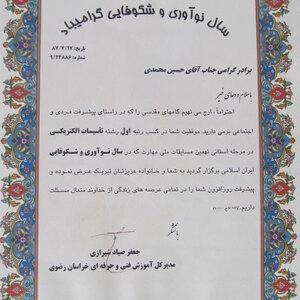 سال نوآوری و شکوفایی گرامیباد
تاریخ: ۸۷/۷/۱۷
شماره: ۹/۲۴۸۸۶
برادر گرامی جناب آقای حسین محمدی
با سلام و دعای خیر
احتراماً، ارج می نهیم گامهای مقدسی را که در راستای پیشرفت فردی و
اجتماعی برمی دارید. موفقیت شما در کسب رتبه اول رشته تأسیسات الکتریکی
در مرحله استانی نهمین مسابقات ملی مهارت که در سال نوآوری و شکوفایی
ایران اسلامی برگزار گردید به شما و خانواده عزیزتان تبریک عرض نموده و
پیشرفت روزافزون شما را در تمامی عرصه های زندگی از خداوند متعال مسئلت
داریم.
با تشکر
جعفر صیاد شیرازی
مدیرکل آموزش فنی و حرفه ای خراسان رضوی